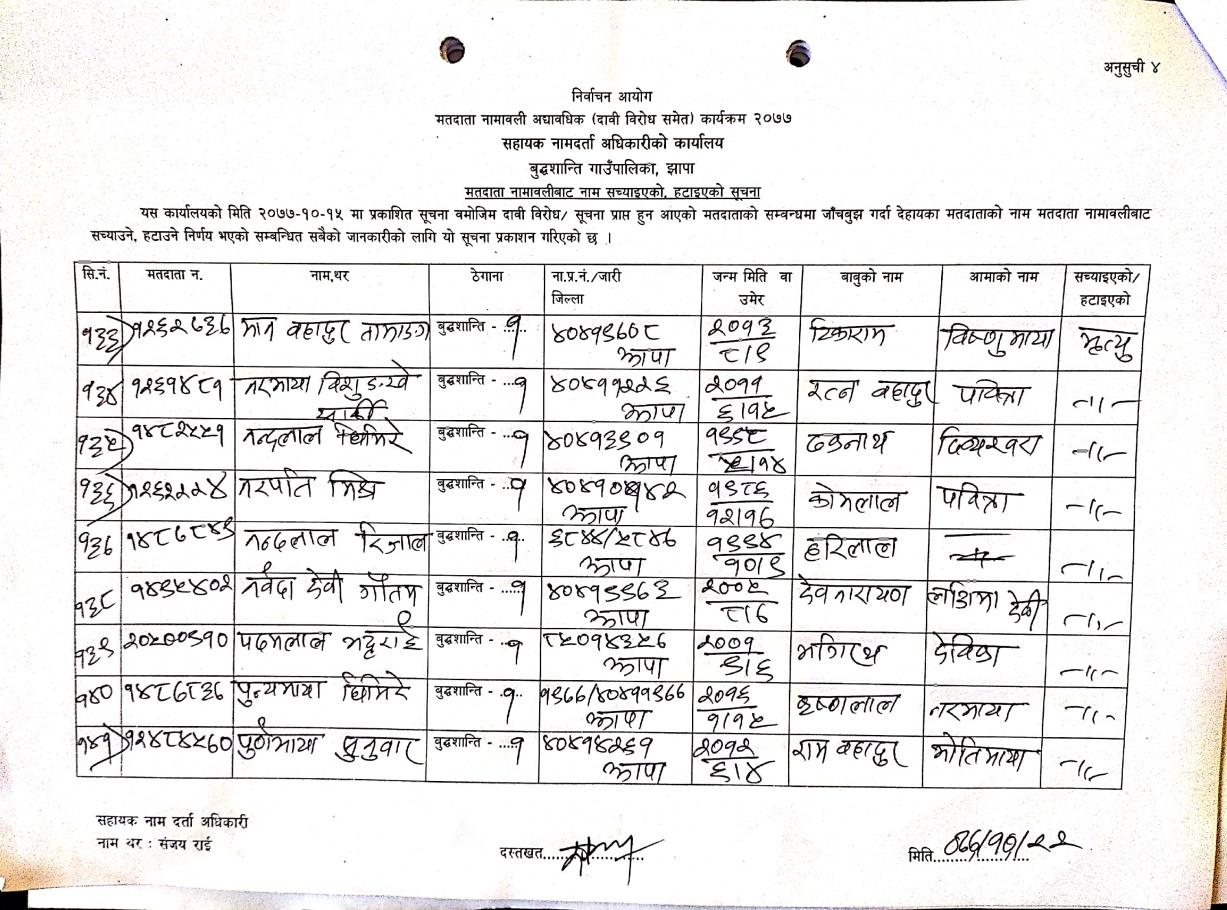 अनुसुची ४
निर्वाचन आयोग
मतदाता नामावली अद्यावधिक (दावी विरोध समेत) कार्यक्रम २०७७
सहायक नामदर्ता अधिकारीको कार्यालय
बुद्धशान्ति गाउँपालिका, झापा
मतदाता नामावलीबाट नाम सच्याइएको, हटाइएको सूचना
यस कार्यालयको मिति २०७७-१०-१५ मा प्रकाशित सूचना वमोजिम दावी विरोध/ सूचना प्राप्त हुन आएको मतदाताको सम्बन्धमा जाँचबुझ गर्दा देहायका मतदाताको नाम मतदाता नामावलीबाट
सच्याउने, हटाउने निर्णय भएको सम्बन्धित सबैको जानकारीको लागि यो सूचना प्रकाशन गरिएको छ ।
सि.नं. मतदाता न. नाम,थर ठेगाना ना.प्र.नं./जारी जिल्ला जन्म मिति वा उमेर बाबुको नाम आमाको नाम सच्याइएको/ हटाइएको
१३३ १२६२७३६ मान वहादुर तामाङ्ग बुद्धशान्ति - १ ४०४१९६०८ झापा २०१३ ८।९ टिकाराम विष्णुमाया मृत्यु
१३४ १२६१४८१ नरमाया बुद्धशान्ति - १ ४०४११२२६ झापा २०११ ६।१५ रत्न वहादुर पवित्रा -।।-
१३५ १४८२५५१ नन्दलाल घिमिरे बुद्धशान्ति - १ ४०४१३९०१ झापा १९९८ ५।१४ ढकनाथ -।।-
१३६ १२६२२२४ नरपति मिश्र बुद्धशान्ति - १ झापा १९८६ १२।१६ कोमलाल पवित्रा -।।-
१३७ १४८७८४९ नन्दलाल रिजाल बुद्धशान्ति - १ ६८४४/५८४७ झापा १९९४ १०।९ हरिलाल -।।-
१३८ १४९५४०२ नर्वदा देवी गौतम बुद्धशान्ति - १ ४०४१९९६३ झापा २००५ ८।७ देवनारायण देवी -।।-
१३९ २०५००९१० पदमलाल भट्टराई बुद्धशान्ति - १ ८५०१४३५७ झापा २००१ ९।६ भगिरथ देविका -।।-
१४० १४८७८३६ पुन्यमाया घिमिरे बुद्धशान्ति - १ १९७७/४०४११९७७ झापा २०१६ १।१५ कृष्णलाल नरमाया -।।-
१४१ १२४८४५६० पुर्णमाया सुनुवार बुद्धशान्ति - १ ४०४१४२६१ झापा २०१२ ६।४ राम वहादुर मोतिमाया -।।-
सहायक नाम दर्ता अधिकारी
नाम थर : संजय राई
दस्तखत
मिति ०७७/१०/२२